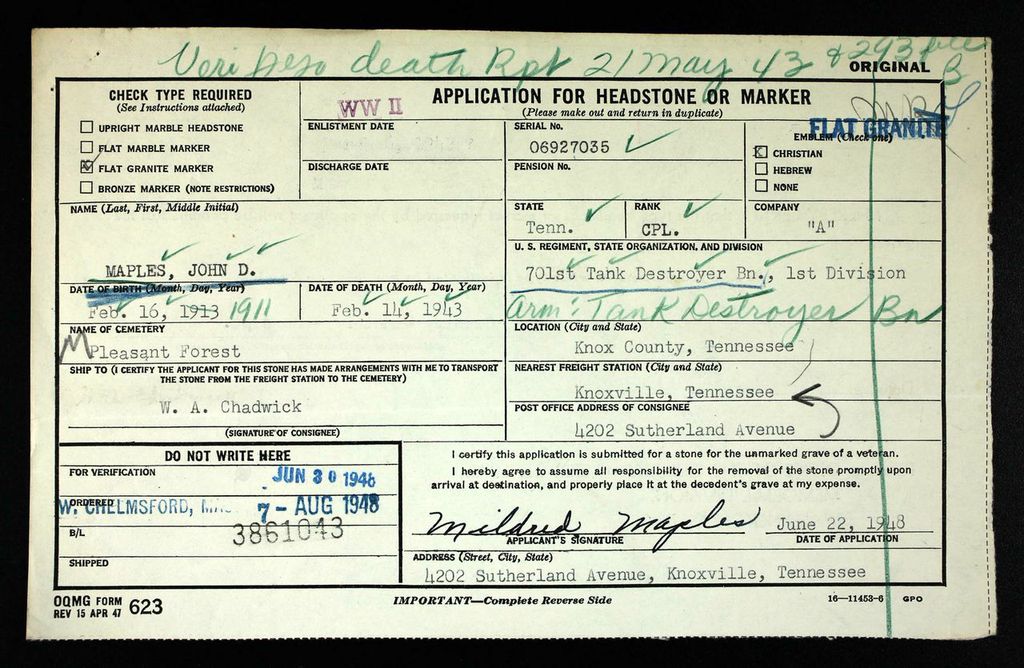 death Rpt 21 May 43 & 293
ORIGINAL
B
CHECK TYPE REQUIRED
(See Instructions attached)
UPRIGHT MARBLE HEADSTONE
FLAT MARBLE MARKER
FLAT GRANITE MARKER
BRONZE MARKER (NOTE RESTRICTIONS)
WW II
APPLICATION FOR HEADSTONE OR MARKER
(Please make out and return in duplicate)
ENLISTMENT DATE
DISCHARGE DATE
SERIAL No.
06927035
PENSION No.
FLAT GRANITE
EMBLEM (Check one)
CHRISTIAN
HEBREW
NONE
NAME (Last, First, Middle Initial)
MAPLES, JOHN D.
STATE
Tenn.
RANK
CPL.
COMPANY
"A"
U. S. REGIMENT, STATE ORGANIZATION, AND DIVISION
701st Tank Destroyer Bn., 1st Division
Arm: Tank Destroyer Bn
DATE OF BIRTH (Month, Day, Year)
Feb. 16, 1913 1911
DATE OF DEATH (Month, Day, Year)
Feb. 14, 1943
NAME OF CEMETERY
Pleasant Forest
LOCATION (City and State)
Knox County, Tennessee
SHIP TO (I CERTIFY THE APPLICANT FOR THIS STONE HAS MADE ARRANGEMENTS WITH ME TO TRANSPORT
THE STONE FROM THE FREIGHT STATION TO THE CEMETERY)
W. A. Chadwick
(SIGNATURE OF CONSIGNEE)
NEAREST FREIGHT STATION (City and State)
Knoxville, Tennessee
POST OFFICE ADDRESS OF CONSIGNEE
4202 Sutherland Avenue
DO NOT WRITE HERE
FOR VERIFICATION
JUN 30 1948
ORDERED
W. CHELMSFORD,
7 - AUG 1948
B/L
3861043
SHIPPED
I certify this application is submitted for a stone for the unmarked grave of a veteran.
I hereby agree to assume all responsibility for the removal of the stone promptly upon
arrival at destination, and properly place it at the decedent's grave at my expense.
Mildred Maples
June 22, 1948
APPLICANT'S SIGNATURE
DATE OF APPLICATION
ADDRESS (Street, City, State)
4202 Sutherland Avenue, Knoxville, Tennessee
OQMG FORM
REV 15 APR 47 623
IMPORTANT—Complete Reverse Side
16—11453-6 GPO